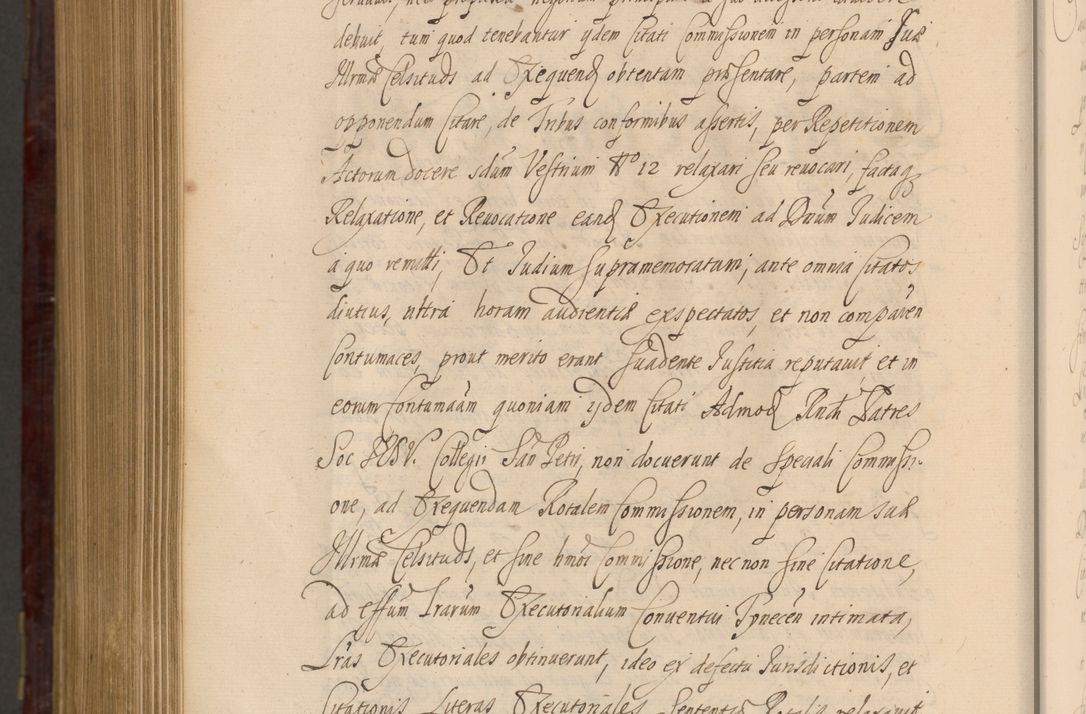 debuit, tum quod tenebantur ijdem Citati Commissionem in personam Suæ
Illrmæ Celsituds ad Exequend obtentam præsentare, partem ad
opponendum Citare, de Tribus conformibus assertis, per Repetitionem
Actorum docere sdum Vestrium No 12 relaxari seu revocari, factaq
Relaxatione, et Revocatione eand Executionem ad Duum Judicem
a quo remitti, Et Judium supramemoratum, ante omnia Citatos
diutius, ultra horam audientiæ exspectatos, et non comparen
Contumaces, prout merito erant suadente Justitia reputavit et in
eorum Contumaam quoniam ijdem Citati Admod Rndi Patres
Soc IESV. Collegii San Petri, non docuerunt de speciali Commissi-
one, ad Exequendam Rotalem Commissionem, in personam suæ
Illrmæ Celsituds, et sine hmoi Commissione, nec non sine Citatione,
ad effum Lrarum Executorialium Conventui Tynecen intimata,
Lras Executoriales obtinuerunt, ideo ex defectu Jurisdictionis, et
Citationis Literas Executoriales Sententiæ Rotalis relaxavit